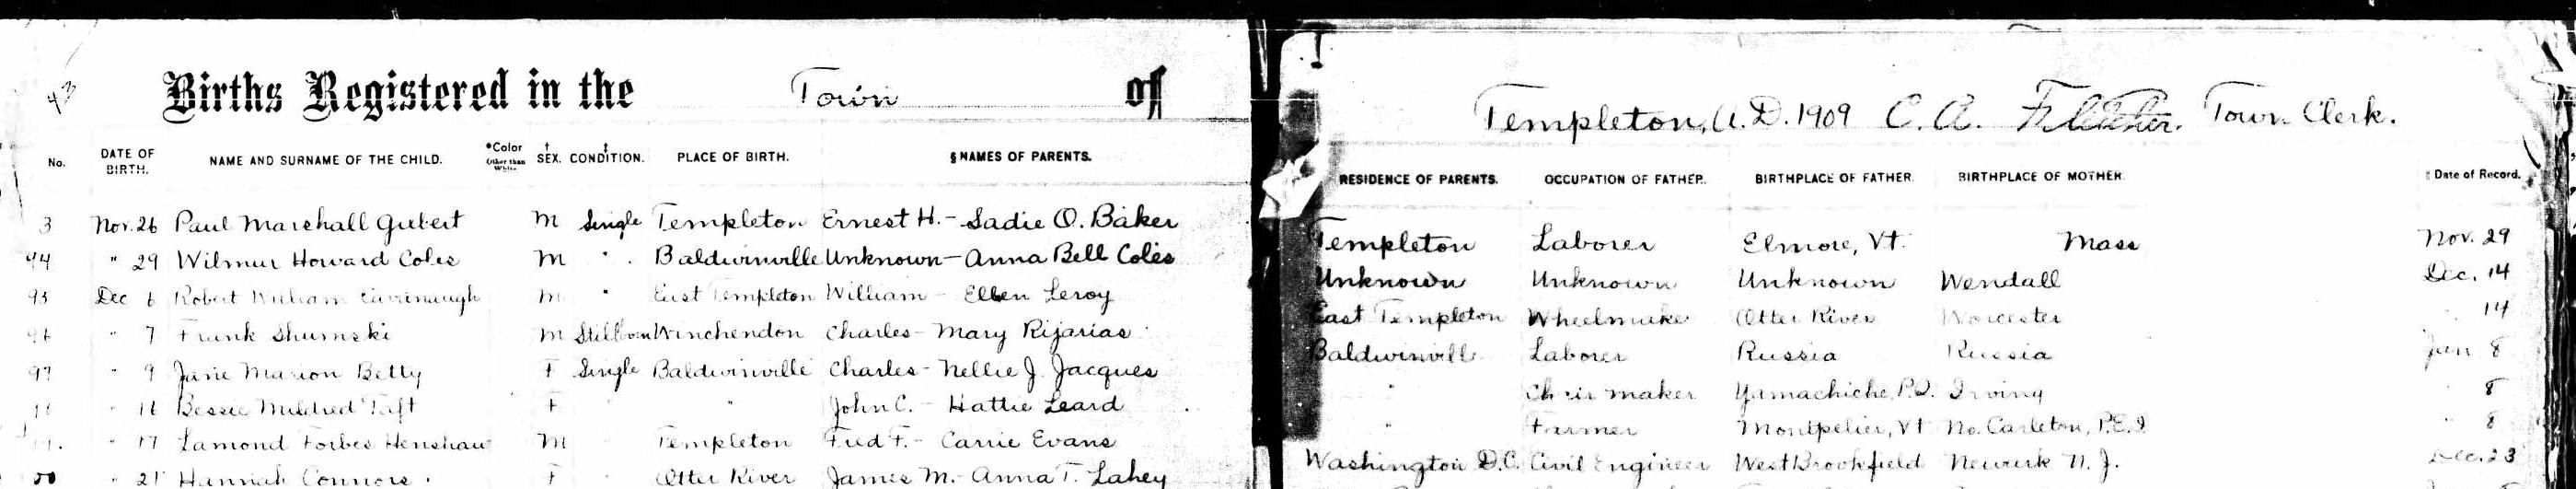 43
Births Registered in the Town of
Templeton, A.D. 1909 C. A. Fletcher. Town Clerk.
No. DATE OF BIRTH. NAME AND SURNAME OF THE CHILD. *Color (Other than White) † SEX. ‡ CONDITION. PLACE OF BIRTH. § NAMES OF PARENTS. RESIDENCE OF PARENTS. OCCUPATION OF FATHER. BIRTHPLACE OF FATHER. BIRTHPLACE OF MOTHER. Date of Record.
3 Nov. 26 Paul Marshall M Single Templeton Ernest H. - Sadie O. Baker Templeton Laborer Elmore, Vt. Mass Nov. 29
94 " 29 Wilmur Howard Coles M " Baldwinville Unknown - Anna Bell Coles Unknown Unknown Unknown Wendall Dec. 14
95 Dec 6 Robert William Cavanaugh M " East Templeton William - Ellen Leroy East Templeton Wheelmaker Otter River Worcester " 14
96 " 7 Frank Shumski M Stillborn Winchendon Charles - Mary Rijarias Baldwinvill Laborer Russia Russia Jan 8
97 " 9 Jane Marion Betty F Single Baldwinville Charles - Nellie J. Jacques " Chair maker Yamachiche, P.Q. Irving " 8
" 16 Bessie Mildred Taft F " " John C. - Hattie Leard " Farmer Montpelier, Vt No. Carleton, P.E.I " 8
" 17 Lamond Forbes Henshaw M " Templeton Fred F. - Carrie Evans Washington D.C. Civil Engineer West Brookfield Newark N. J. Dec. 23
" 21 Hannah Connors F " Otter River James M. - Anna T. Lahey